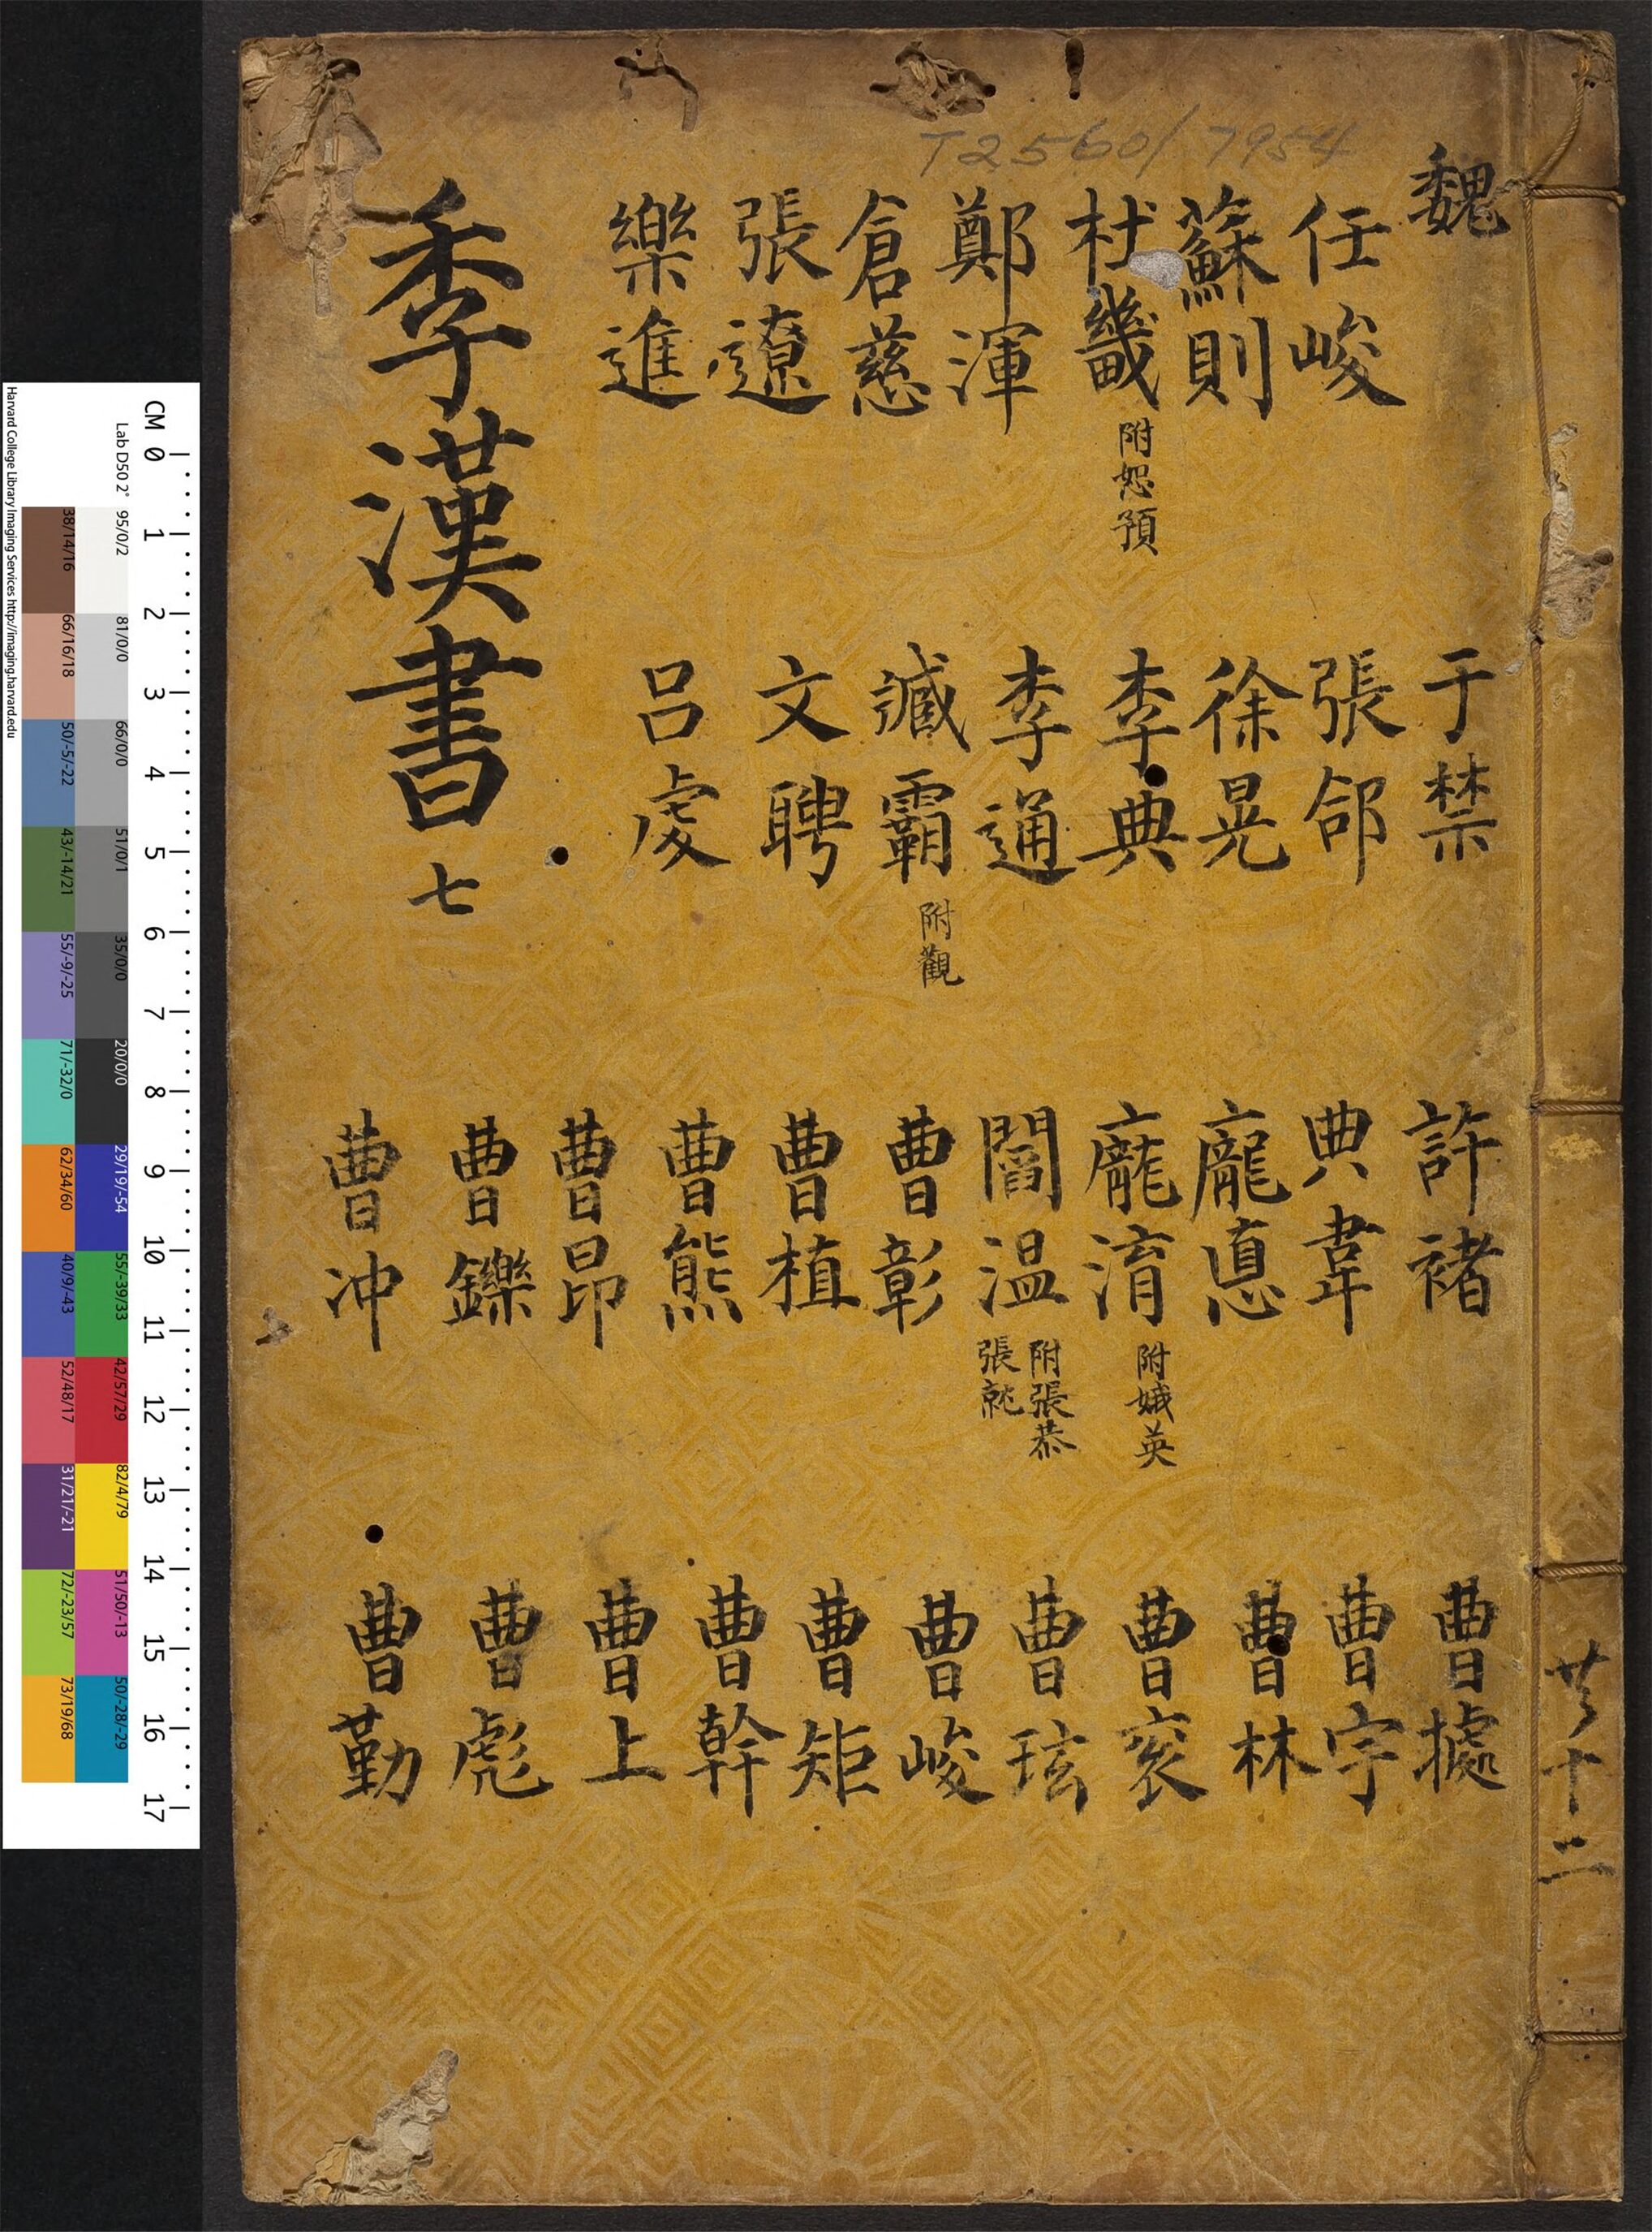 T2560/7954
魏
任峻
蘇則
杜畿 附恕預
鄭渾
倉慈
張遼
樂進
于禁
張郃
徐晃
李典
李通
臧霸 附觀
文聘
呂虔
許褚
典韋
龐悳
龐淯 附娥英
閻温 附張恭 張就
曹彰
曹植
曹熊
曹昂
曹鑠
曹冲
曹據
曹宇
曹林
曹衮
曹玹
曹峻
曹矩
曹幹
曹上
曹彪
曹勤
季漢書 七
共十二
CM 0 1 2 3 4 5 6 7 8 9 10 11 12 13 14 15 16 17
Lab D50 2° 95/0/2 81/0/0 66/0/0 51/0/1 35/0/0 20/0/0 29/19/-54 55/-39/33 42/57/29 82/4/79 51/50/-13 50/-28/-29
38/14/16 66/16/18 50/-5/-22 43/-14/21 55/-9/-25 71/-32/0 62/34/60 40/9/-43 52/48/17 31/21/-21 72/-23/57 73/19/68
Harvard College Library Imaging Services http://imaging.harvard.edu